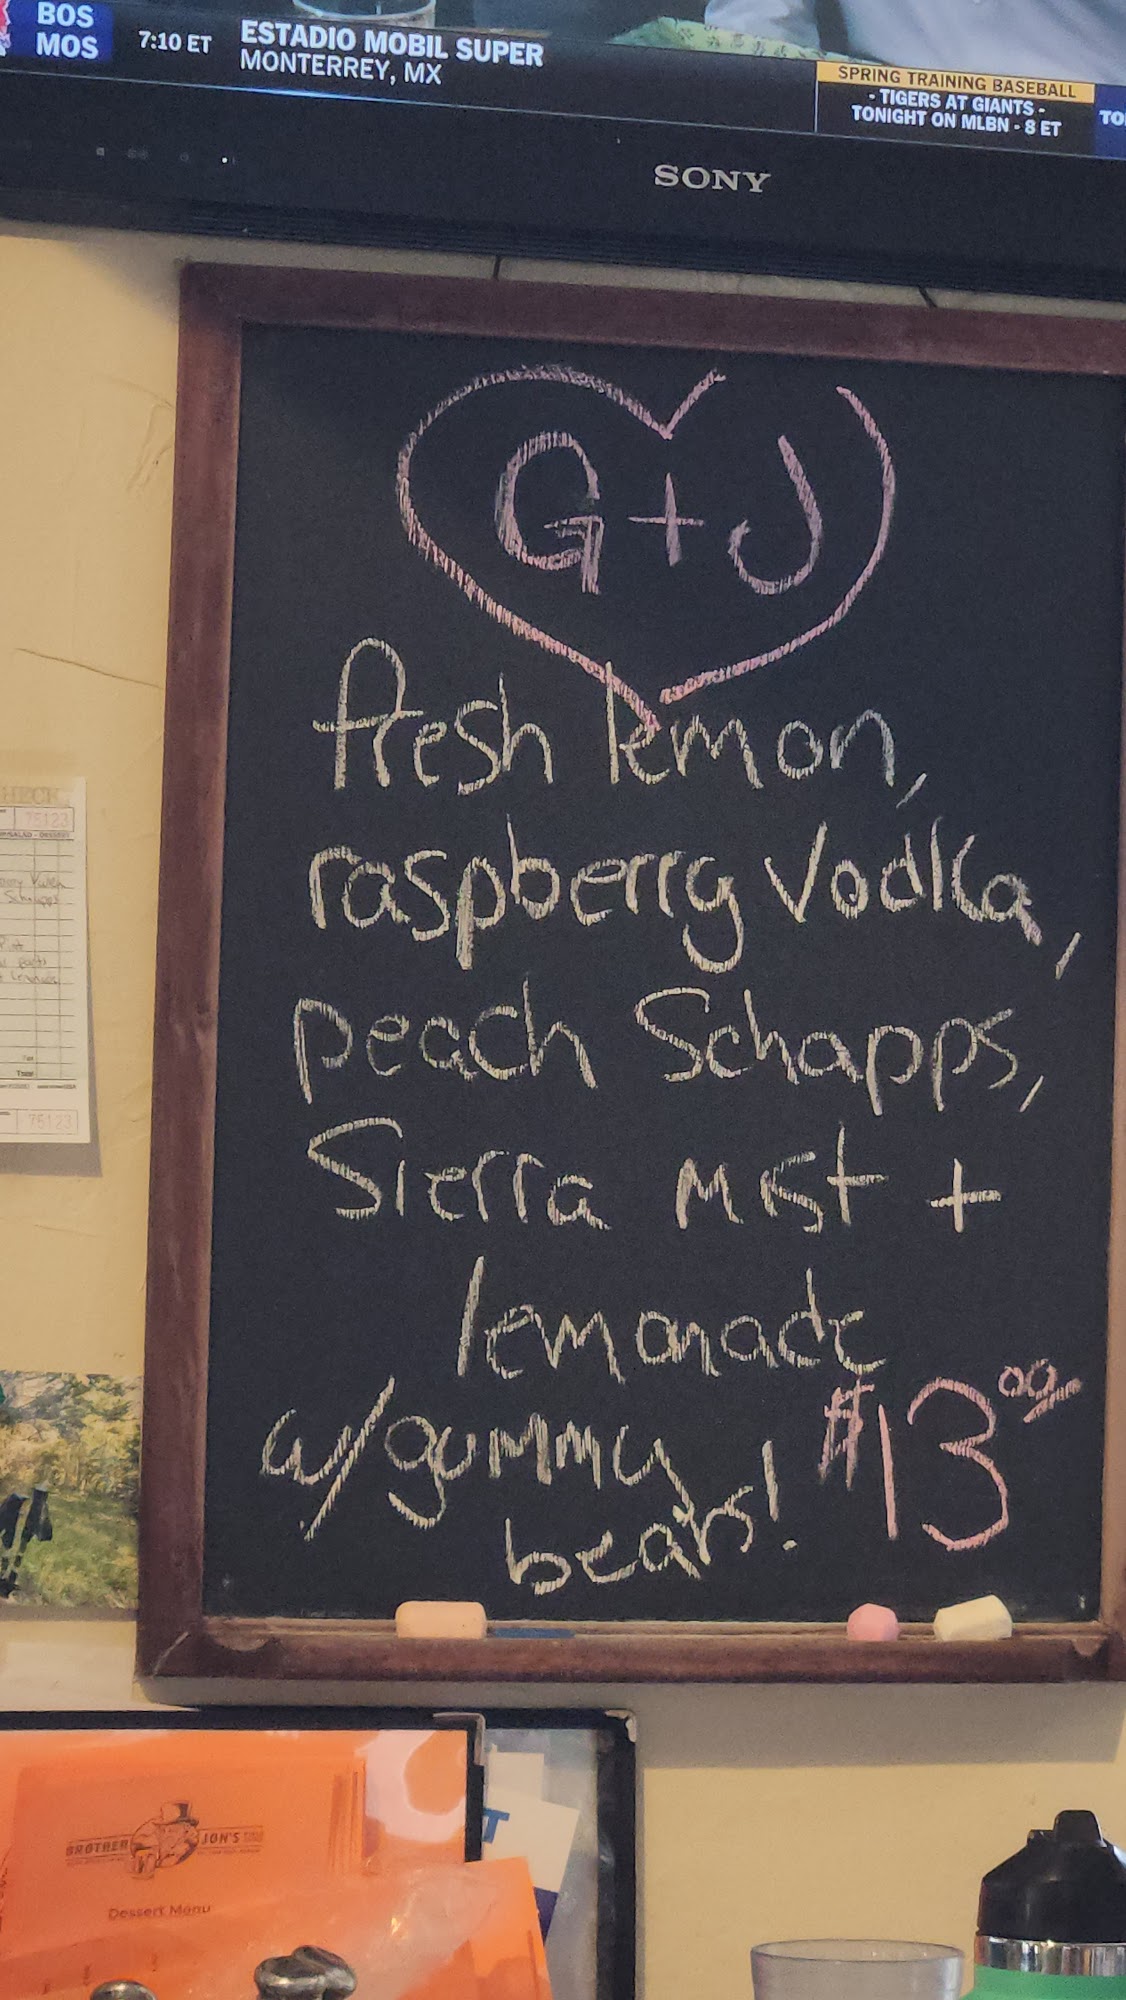 BOS
MOS
7:10 ET
ESTADIO MOBIL SUPER
MONTERREY, MX
SPRING TRAINING BASEBALL
- TIGERS AT GIANTS -
TONIGHT ON MLBN - 8 ET
SONY
G + J
fresh lemon,
raspberry vodka,
peach Schapps,
Sierra Mist +
lemonade
w/gummy
bears! $13.00
75123
Schnapps
Tax
Total
75123
BROTHER JON'S
Dessert Menu